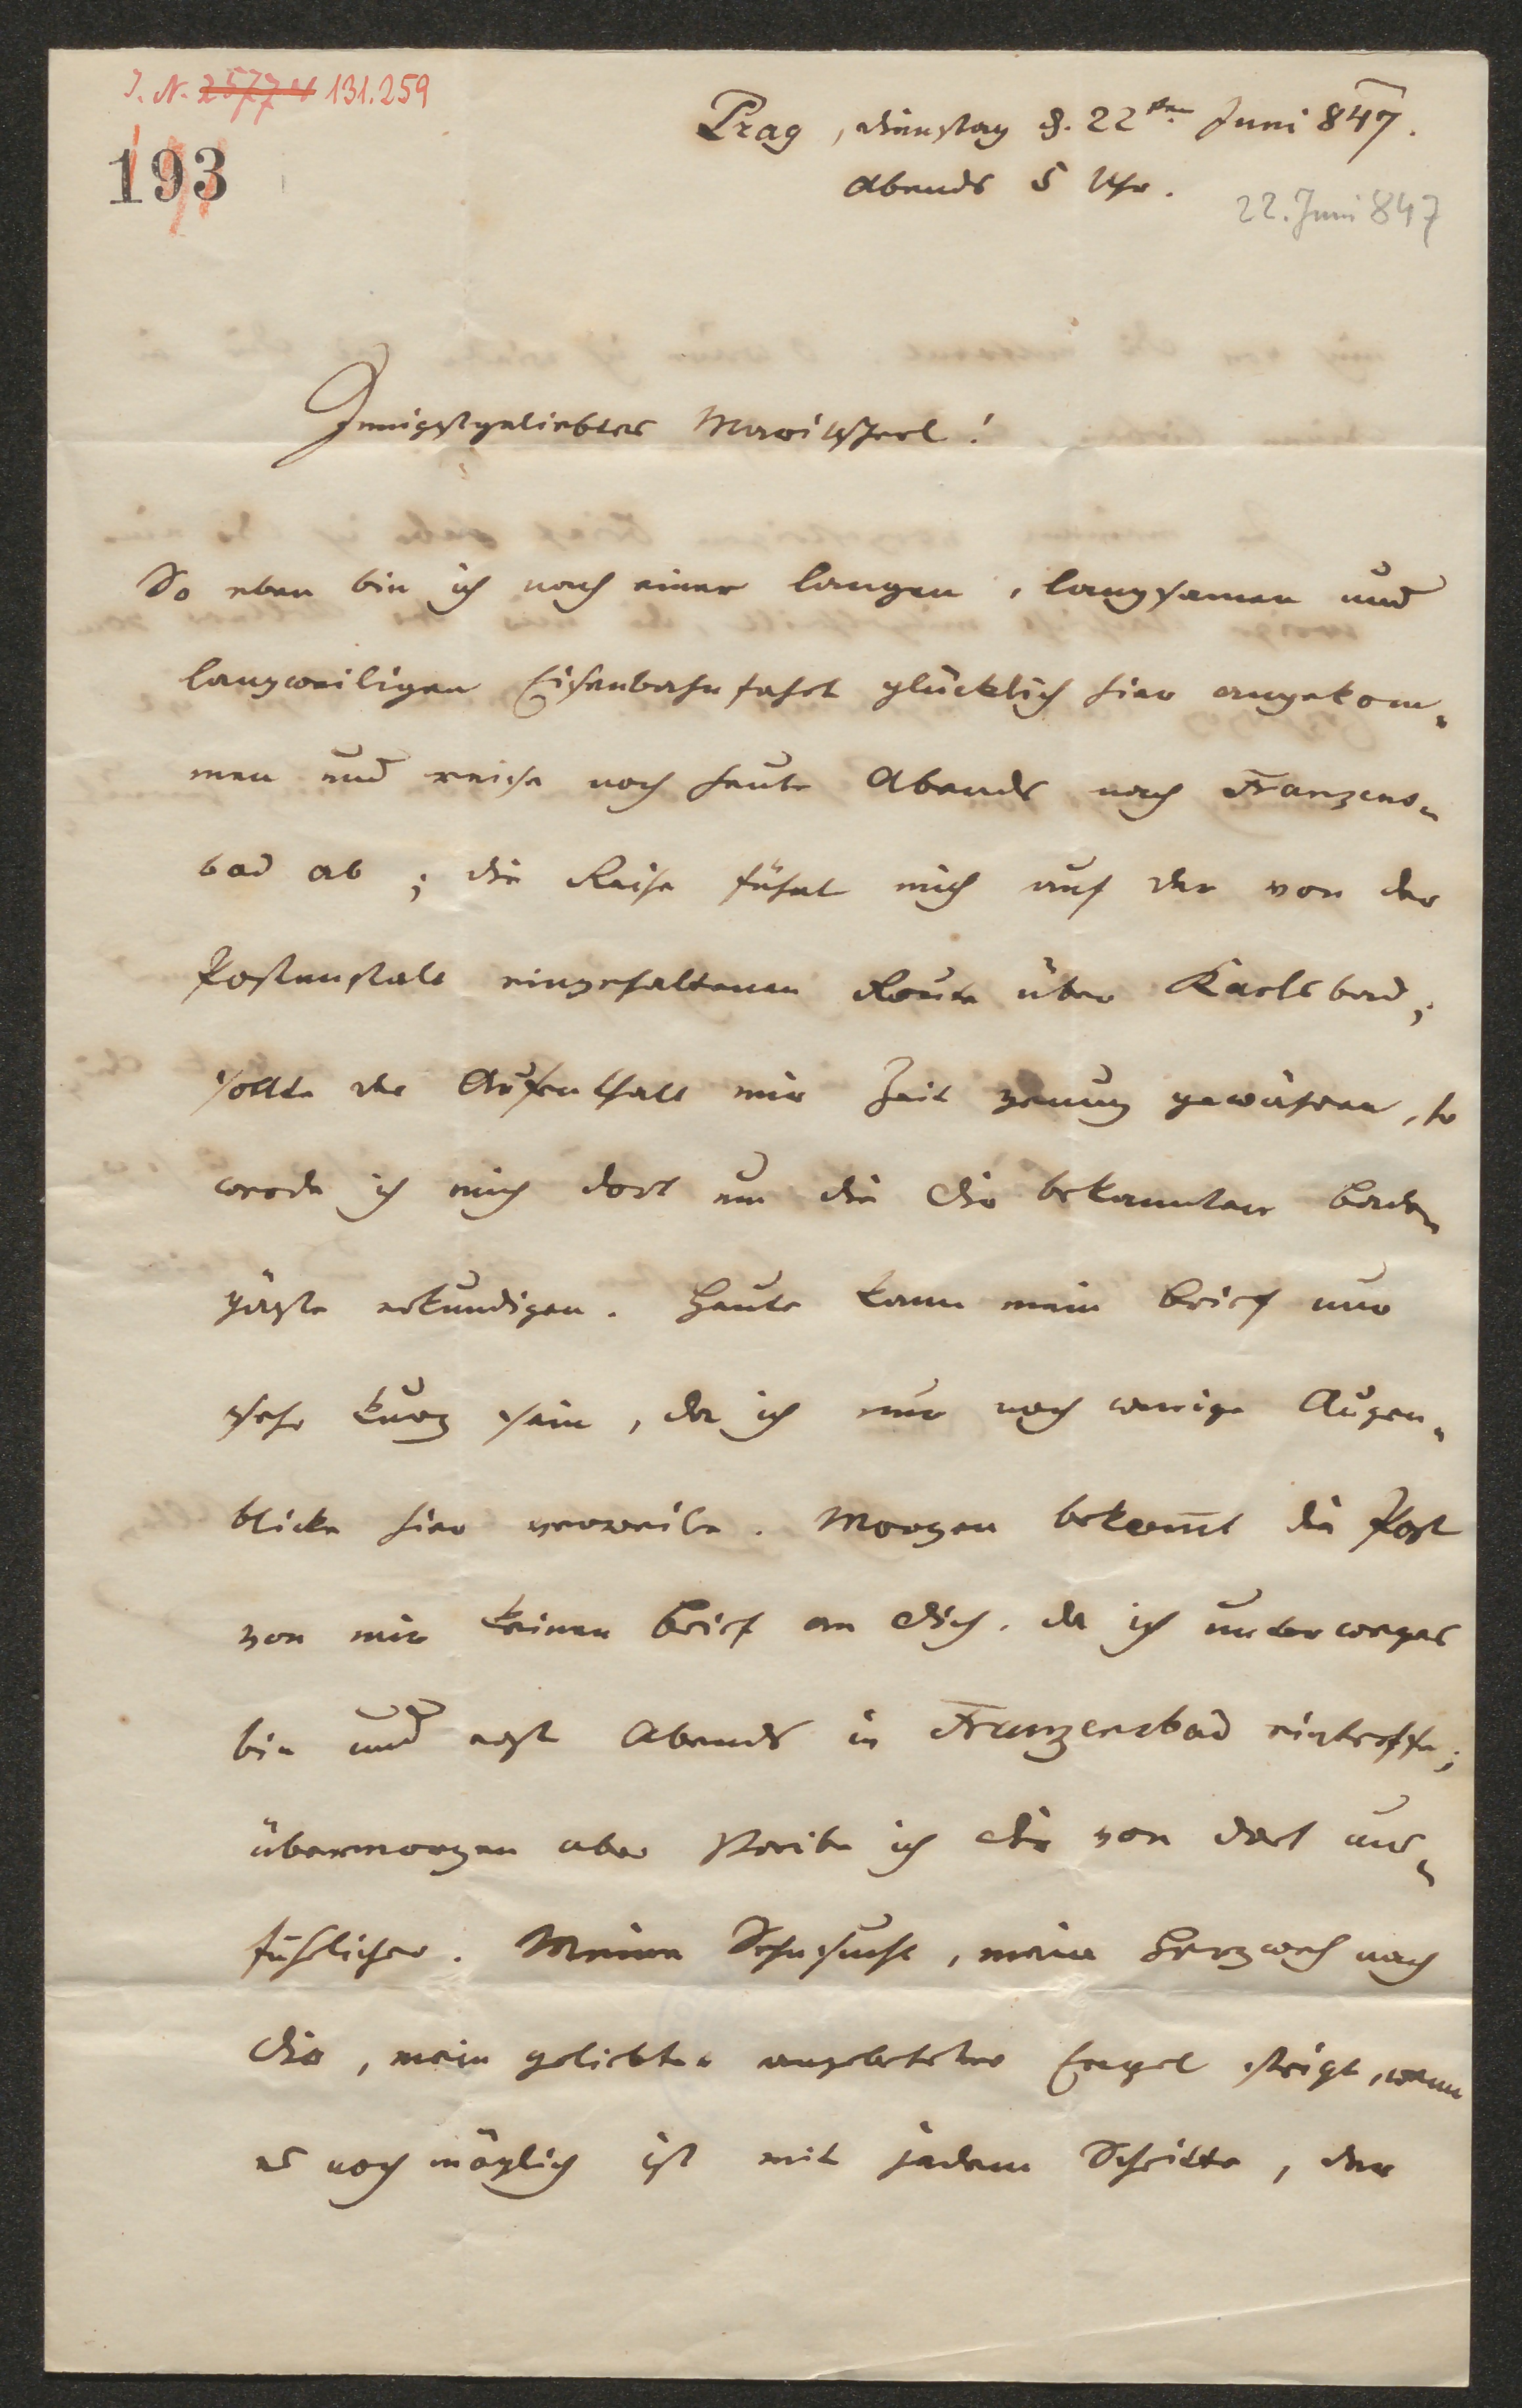 J. N. 25774 131.259
193
Prag, Dienstag d. 22ten Juni 847.
Abends 5 Uhr.
22. Juni 847
Innigstgeliebtes Maritscherl!
So eben bin ich nach einer langen, langsamen und
langweiligen Eisenbahnfahrt glücklich hier angekom„
men und reise noch heute Abends nach Franzens„
bad ab; die Reise führt mich auf der von der
Postanstalt eingehaltenen Route über Karlsbad;
sollte der Aufenthalt mir Zeit genug gewähren, so
werde ich mich dort um die Dir bekannten Bade„
gäste erkundigen. Heute kann mein Brief nur
sehr kurz sein, da ich nur noch wenige Augen„
blicke hier verweile. Morgen bekom̅t die Post
von mir keinen Brief an Dich, da ich unterweges
bin und erst Abends in Franzensbad eintreffe;
übermorgen aber schreibe ich Dir von dort aus„
führlicher. Meine Sehnsucht, mein Herzweh nach
Dir, mein geliebter angebeteter Engel steigt, wenn
es noch möglich ist mit jedem Schritte, der